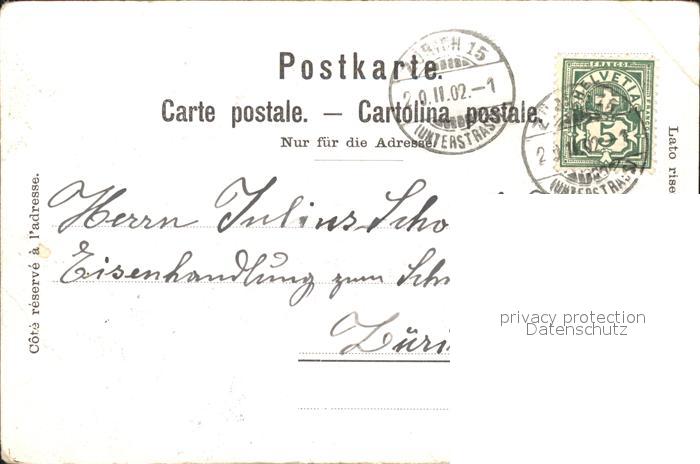 Postkarte.
Carte postale. — Cartolina postale.
Nur für die Adresse.
ZÜRICH 15
29.II.02.–1
(UNTERSTRASS)
FRANCO
HELVETIA
5
(UNTERSTRASS)
Côté réservé à l'adresse.
Lato rise
Herrn Julius Scho
Eisenhandlung zum Sch
Züri
privacy protection
Datenschutz